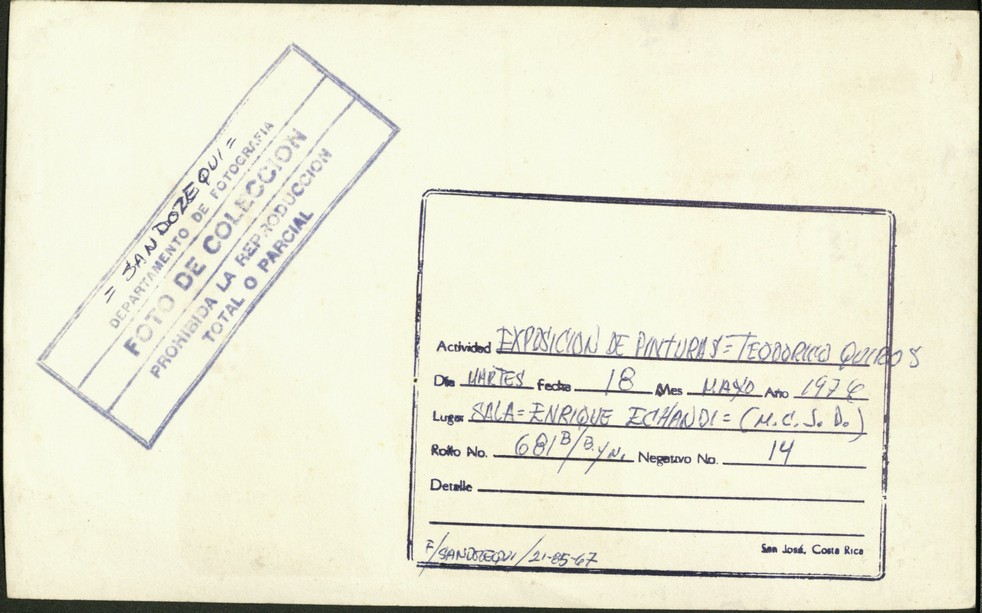 = SANDOZEQUI =
DEPARTAMENTO DE FOTOGRAFIA
FOTO DE COLECCION
PROHIBIDA LA REPRODUCCION
TOTAL O PARCIAL
Actividad EXPOSICION DE PINTURAS = TEODORICO QUIROS
Día MARTES Fecha 18 Mes MAYO Año 1976
Lugar SALA = ENRIQUE ECHANDI = (M.C.J.D.)
Rollo No. 681 B/B.yN. Negativo No. 14
Detalle
San José, Costa Rica
F/SANDOZEQUI/21-85-67